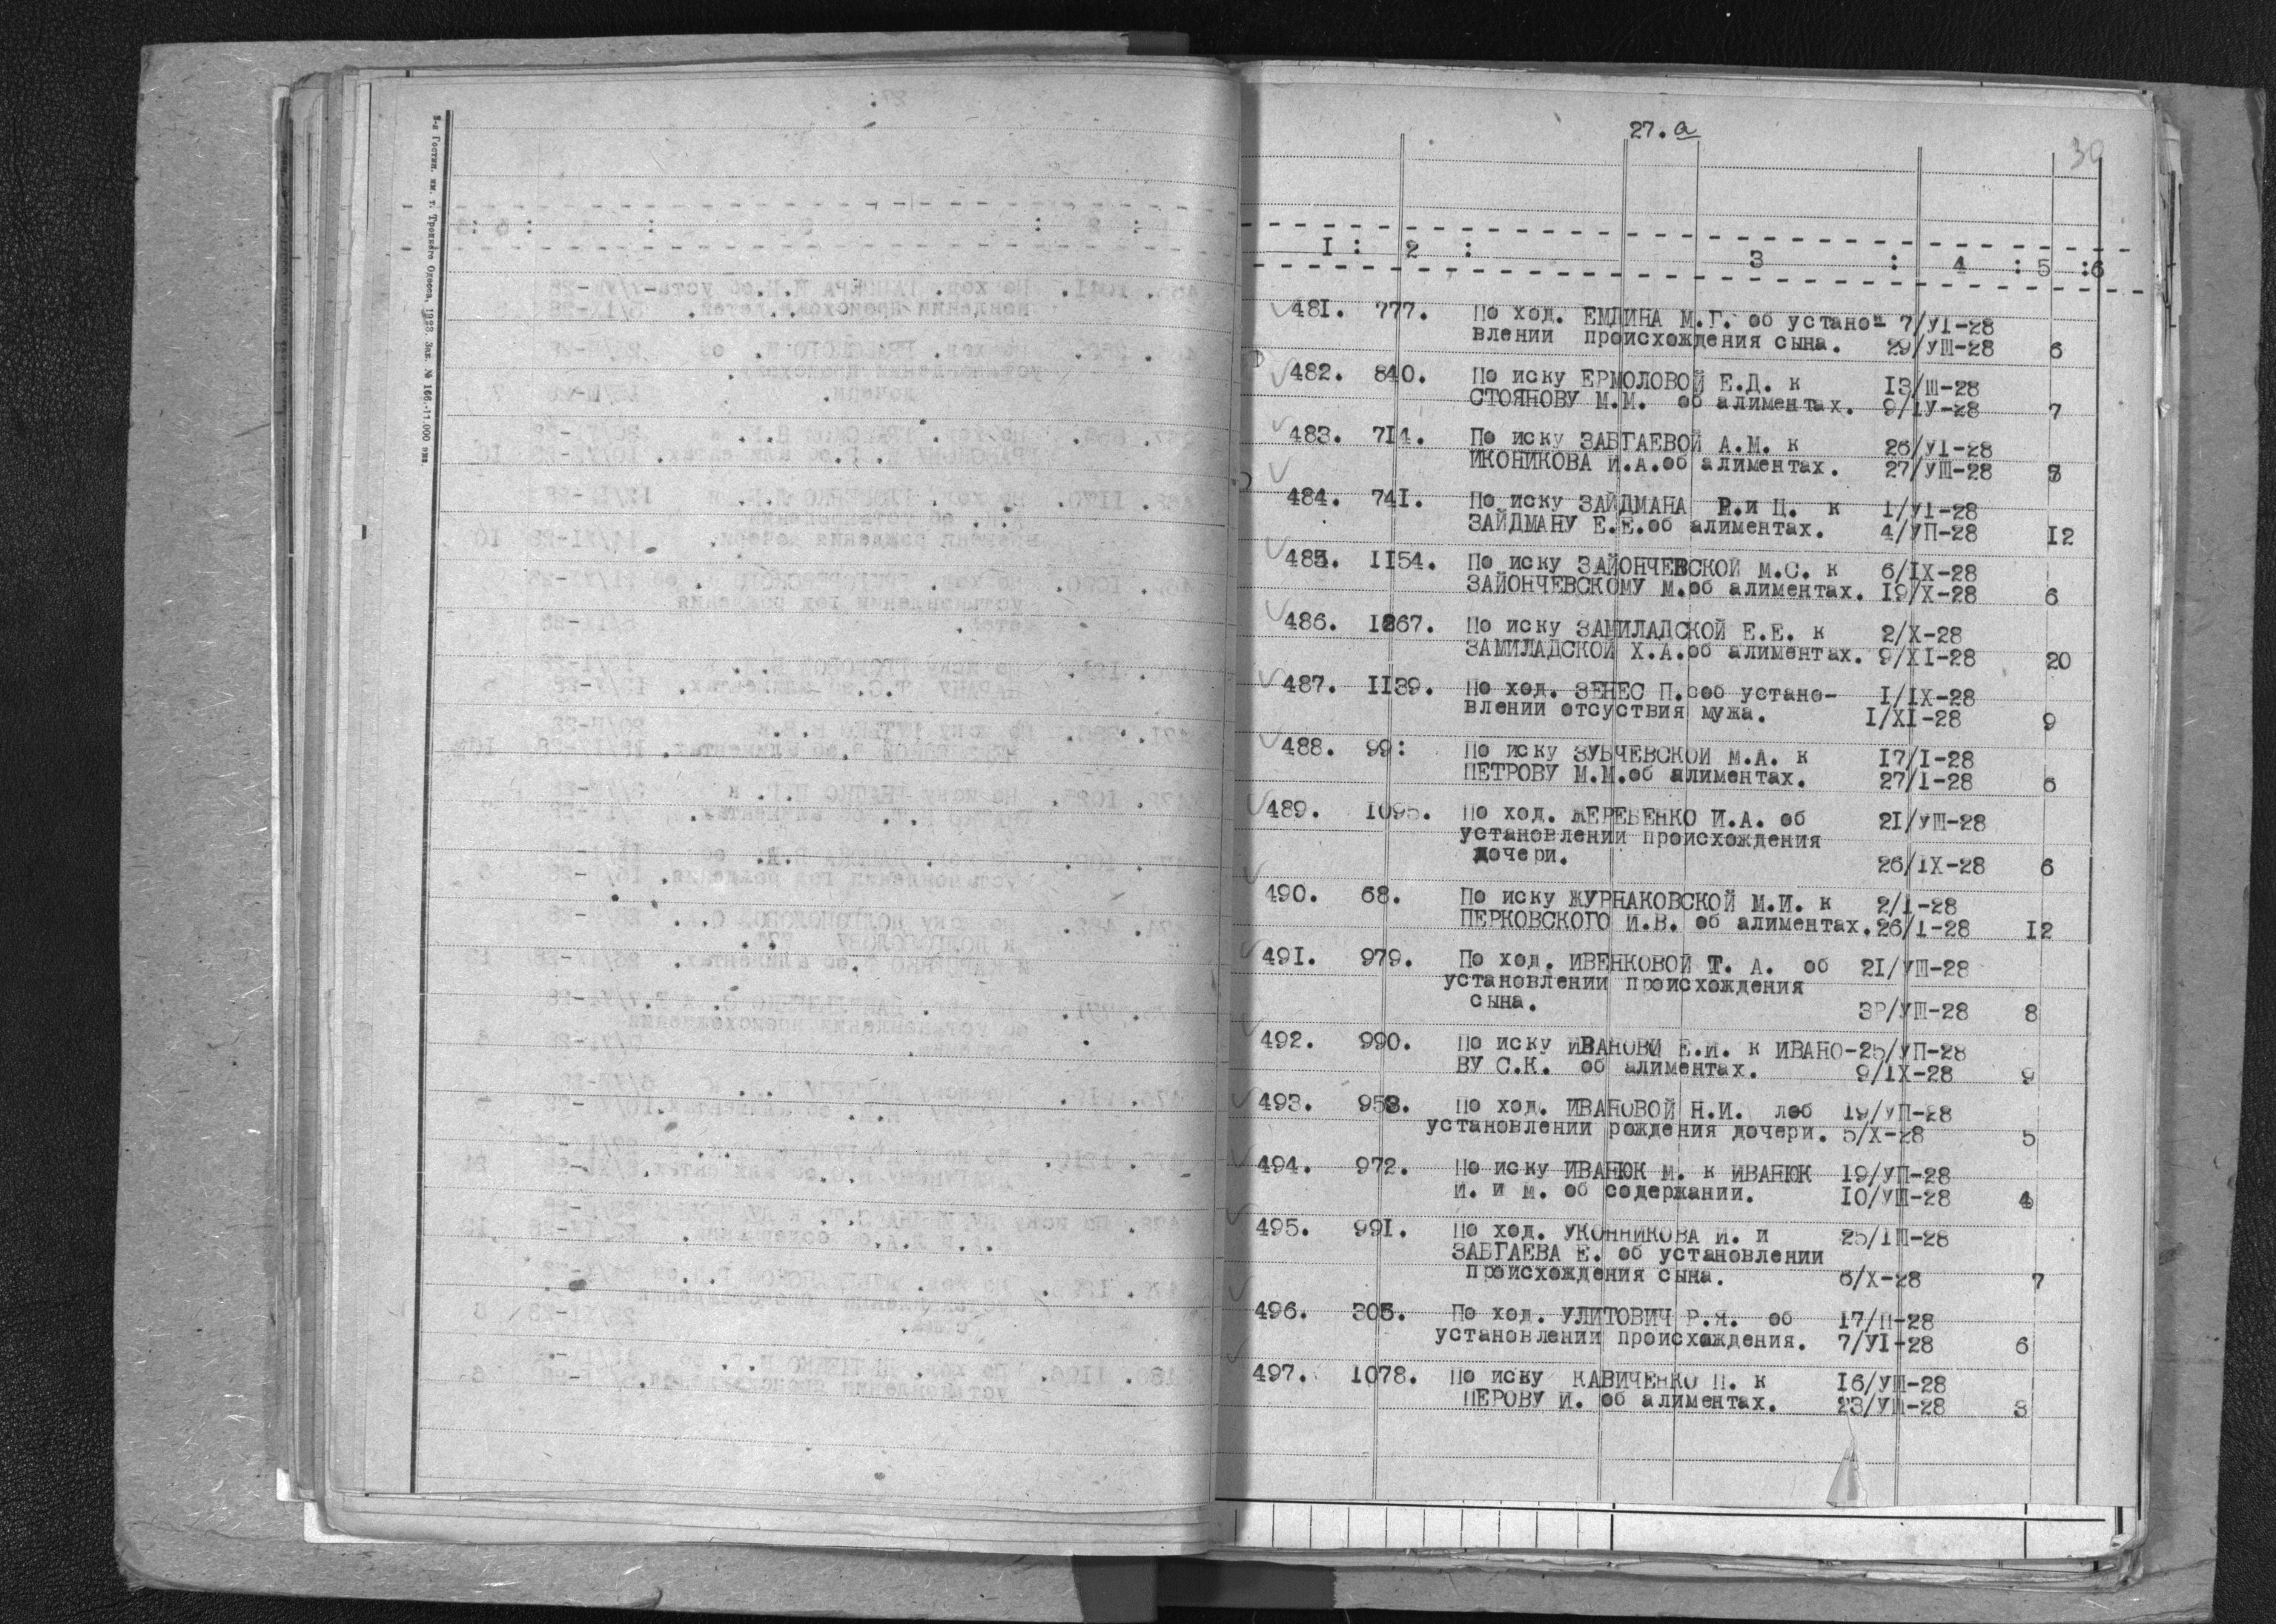 2-я Гостип. им. т. Троцкого Одесса, 1923. Зак. № 166.-11.000 экз.
27.а
30
I : 2 : 3 : 4 : 5 :6
481. 777. По ход. ЕМДИНА М.Г. об устано- 7/УI-28
влении происхождения сына. 29/УШ-28 6
482. 840. По иску ЕРМОЛОВОЙ Е.Д. к I3/Ш-28
СТОЯНОВУ М.М. об алиментах. 9/IУ-28 7
483. 7I4. По иску ЗАБГАЕВОЙ А.М. к 26/УI-28
ИКОНИКОВА И.А.об алиментах. 27/УШ-28
484. 74I. По иску ЗАЙДМАНА Р.и Ц. к I/УI-28
ЗАЙДМАНУ Е.Е.об алиментах. 4/УП-28 I2
485. II54. По иску ЗАЙОНЧЕВСКОЙ М.С. к 6/IX-28
ЗАЙОНЧЕВСКОМУ М.об алиментах. I9/X-28 6
486. I267. По иску ЗАМИЛАДСКОЙ Е.Е. к 2/X-28
ЗАМИЛАДСКОЙ Х.А.об алиментах. 9/XI-28 20
487. II39. По ход. ЗЕНЕС П.соб устано- I/IX-28
влении отсуствия мужа. I/XI-28 9
488. 99: По иску ЗУБЧЕВСКОЙ М.А. к I7/I-28
ПЕТРОВУ М.М.об алиментах. 27/I-28 6
489. I095. По ход. ЖЕРЕБЕНКО И.А. об 2I/УШ-28
установлении происхождения
дочери. 26/IX-28 6
490. 68. По иску ЖУРНАКОВСКОЙ М.И. к 2/I-28
ПЕРКОВСКОГО И.В. об алиментах.26/I-28 I2
49I. 979. По ход. ИВЕНКОВОЙ Т. А. об 2I/УШ-28
установлении происхождения
сына. 3Р/УШ-28 8
492. 990. По иску ИВАНОВИ Е.И. к ИВАНО-25/УП-28
ВУ С.К. об алиментах. 9/IX-28 9
493. 958. По ход. ИВАНОВОЙ Н.И. лоб I9/УП-28
установлении рождения дочери. 5/X-28 5
494. 972. По иску ИВАНЮК М. к ИВАНЮК I9/УП-28
И. и М. об содержании. I0/УШ-28 4
495. 99I. По ход. УКОННИКОВА И. и 25/IШ-28
ЗАБГАЕВА Е. об установлении
происхождения сына. 6/X-28 7
496. 305. По ход. УЛИТОВИЧ Р.Я. об I7/П-28
установлении происхождения. 7/УI-28 6
497. I078. По иску КАВИЧЕНКО П. к I6/УШ-28
ПЕРОВУ И. об алиментах. 23/УШ-28 3